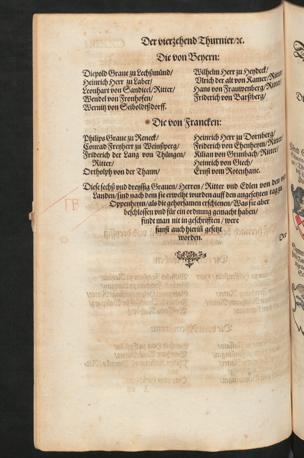 Der vierzehend Thurnier/ꝛc.
Die von Beyern:
Diepold Graue zu Lechßmünd/
Heinrich Herr zu Laber/
Leonhart von Sandizel/ Ritter/
Wendel von Fronhofen/
Wernitz von Seiboldßdorff.
Wilhelm Herr zu Heydeck/
Ulrich der alt von Kamer/ Ritter
Hans von Frauwenberg/ Ritter
Friderich von Barßberg/
Die von Francken:
Philips Graue zu Reneck/
Konrad Freyherr zu Weinsperg/
Friderich der Lang von Thüngen/
Ritter/
Ortholph von der Thann/
Heinrich Herr zu Dornberg/
Friderich von Ehenheym/ Ritter
Kilian von Grumbach/ Ritter
Heinrich von Giech/
Ernst vom Rotenhane.
Diese sechs vnd dreyssig Grauen/ Herren/ Ritter vnd Edlen von den vier
Landen/ sind nach dem sie erwelt wurden auff den angesetzten tag gen
Oppenheym/ als die gehorsamen erschienen/ Was sie aber
beschlossen vnd für ein ordnung gemacht haben/
findt man nit in geschrifften/ were
sunst auch hierin gesetzt
worden.
Der